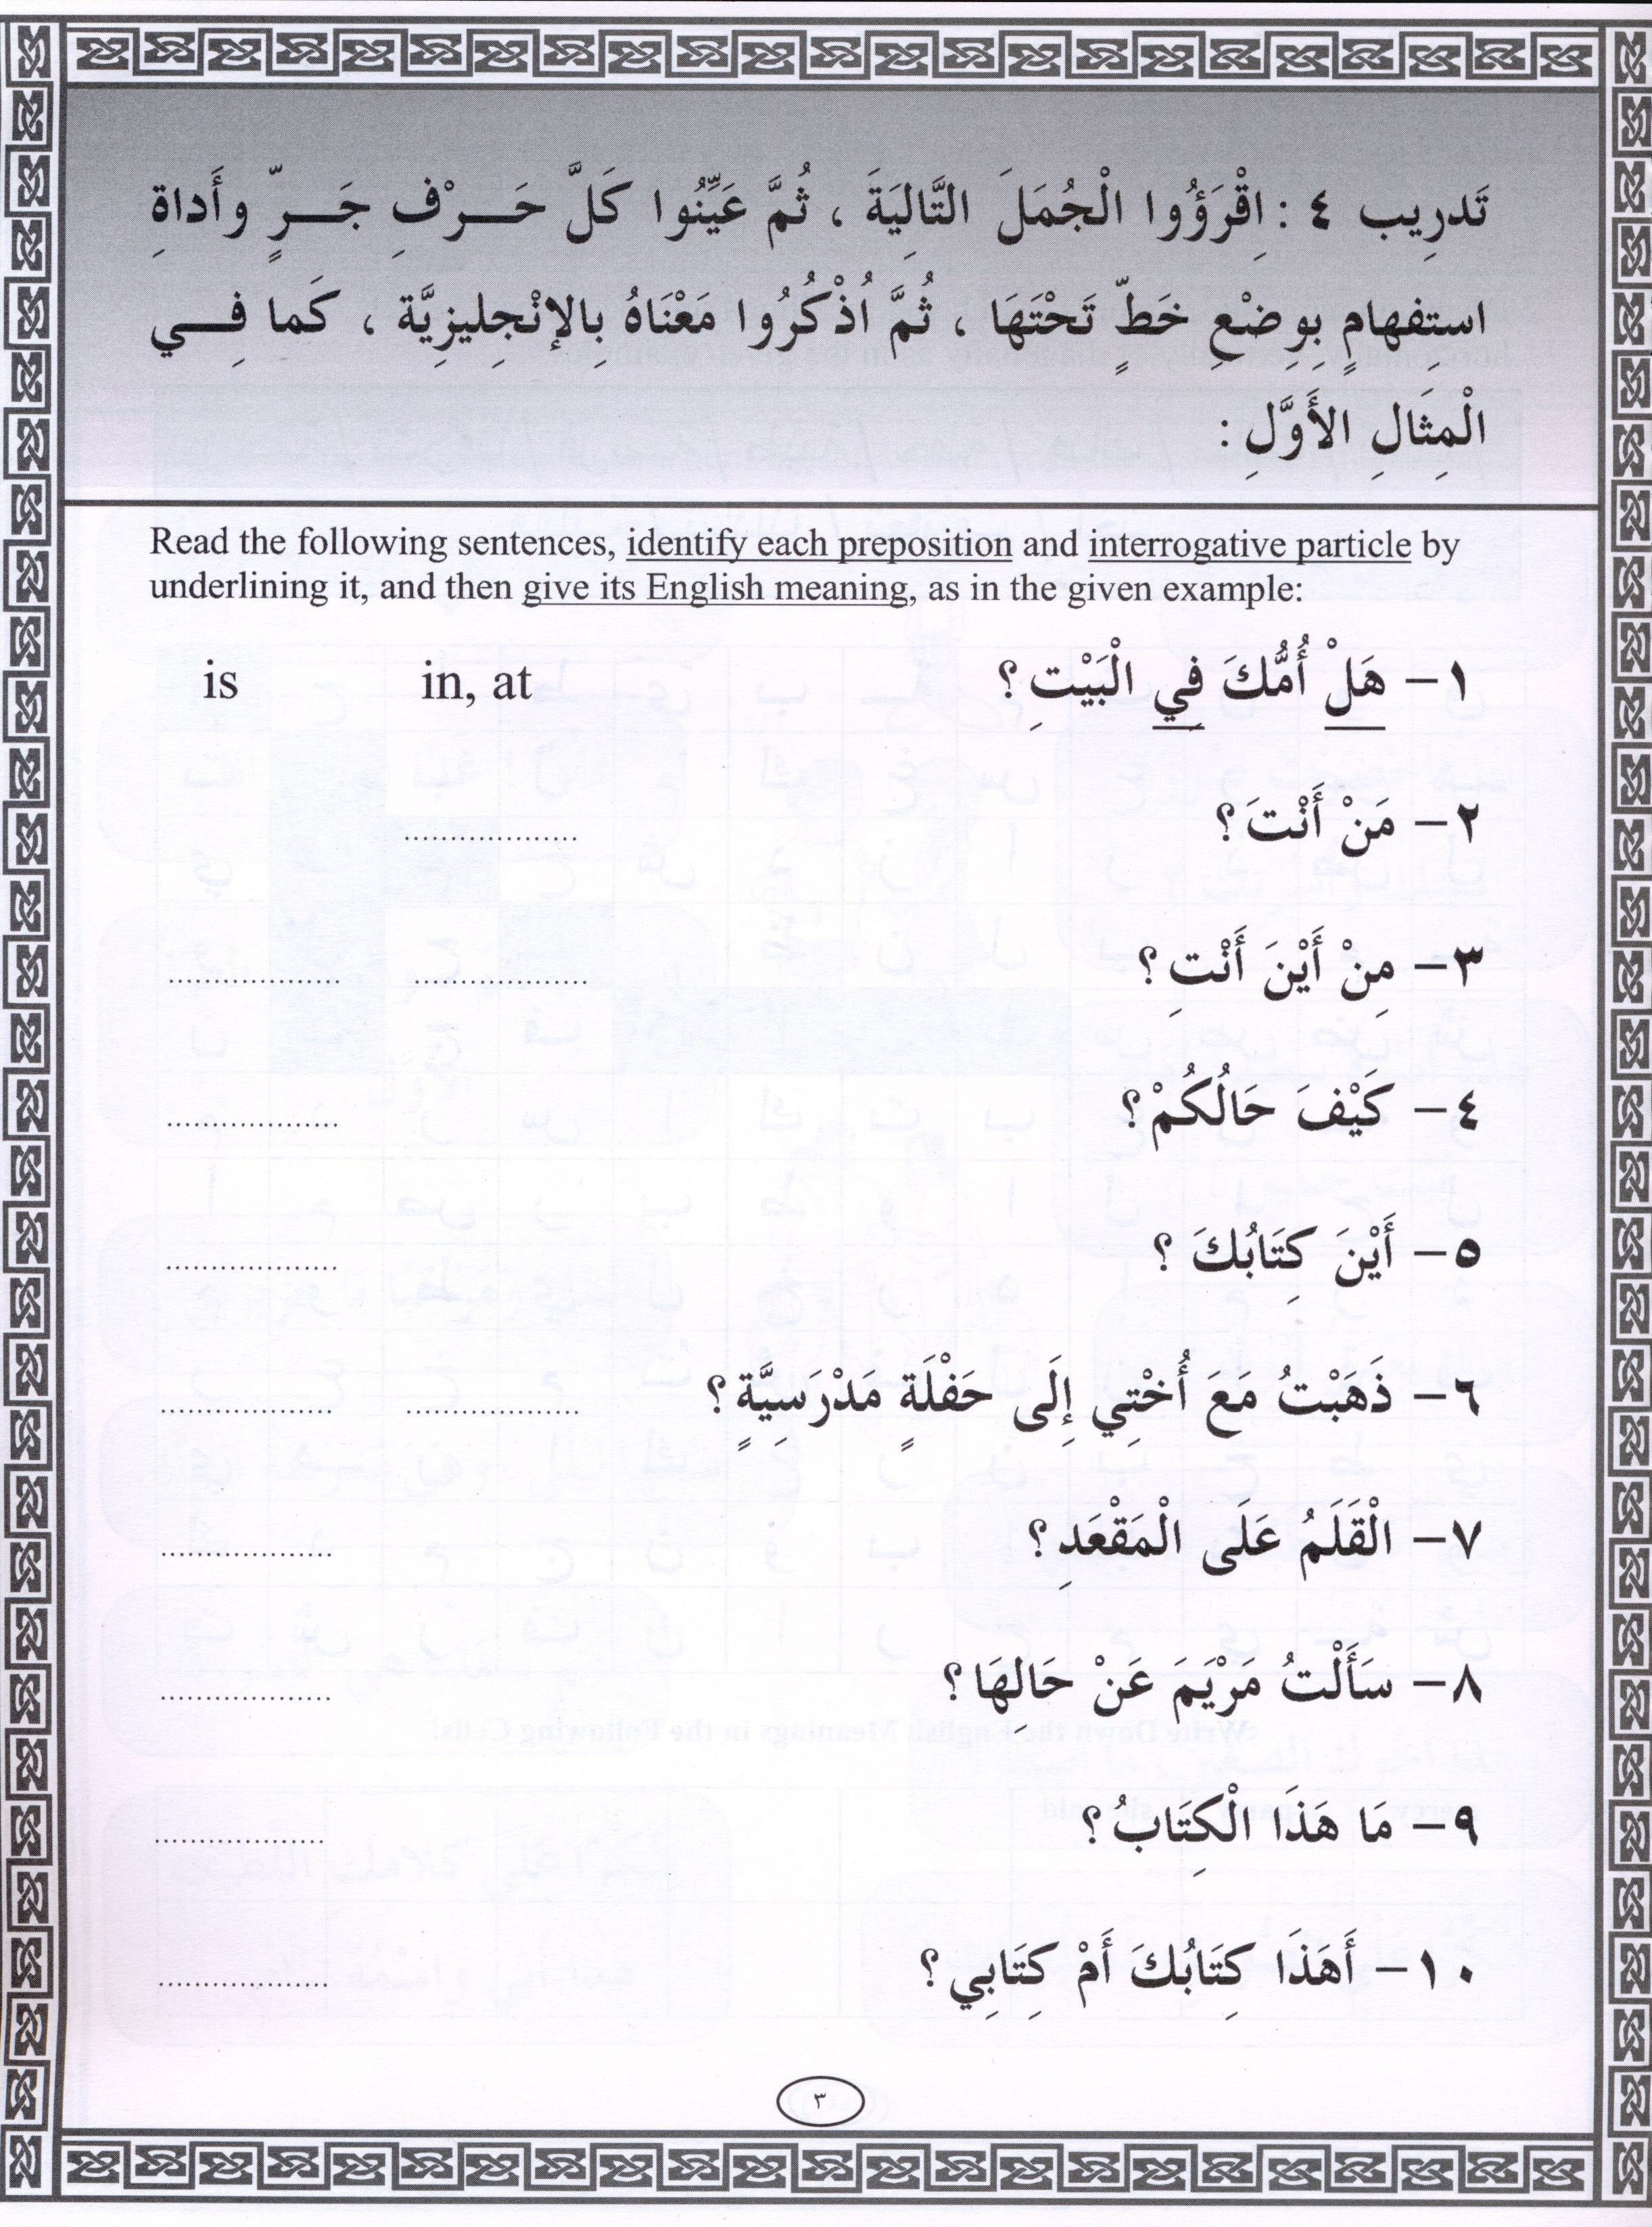 تَدرِيب ٤ : اِقْرَؤُوا الْجُمَلَ التَّالِيَةَ ، ثُمَّ عَيِّنُوا كَلَّ حَـــرْفِ جَـــرٍّ وأَداةِ
استِفهامٍ بِوِضْعِ خَطٍّ تَحْتَهَا ، ثُمَّ اُذْكُرُوا مَعْنَاهُ بِالإنْجِلِيزِيَّة ، كَما فِـــي
الْمِثَالِ الأَوَّلِ :
Read the following sentences, identify each preposition and interrogative particle by
underlining it, and then give its English meaning, as in the given example:
١ – هَلْ أُمُّكَ فِي الْبَيْتِ ؟ in, at is
٢ – مَنْ أَنْتَ ؟ ...................
٣ – مِنْ أَيْنَ أَنْتِ ؟ ................... ...................
٤ – كَيْفَ حَالُكُمْ ؟ ...................
٥ – أَيْنَ كِتَابُكَ ؟ ...................
٦ – ذَهَبْتُ مَعَ أُخْتِي إِلَى حَفْلَةٍ مَدْرَسِيَّةٍ ؟ ................... ...................
٧ – الْقَلَمُ عَلَى الْمَقْعَدِ ؟ ...................
٨ – سَأَلْتُ مَرْيَمَ عَنْ حَالِهَا ؟ ...................
٩ – مَا هَذَا الْكِتَابُ ؟ ...................
١٠ – أَهَذَا كِتَابُكَ أَمْ كِتَابِي ؟ ...................
٣